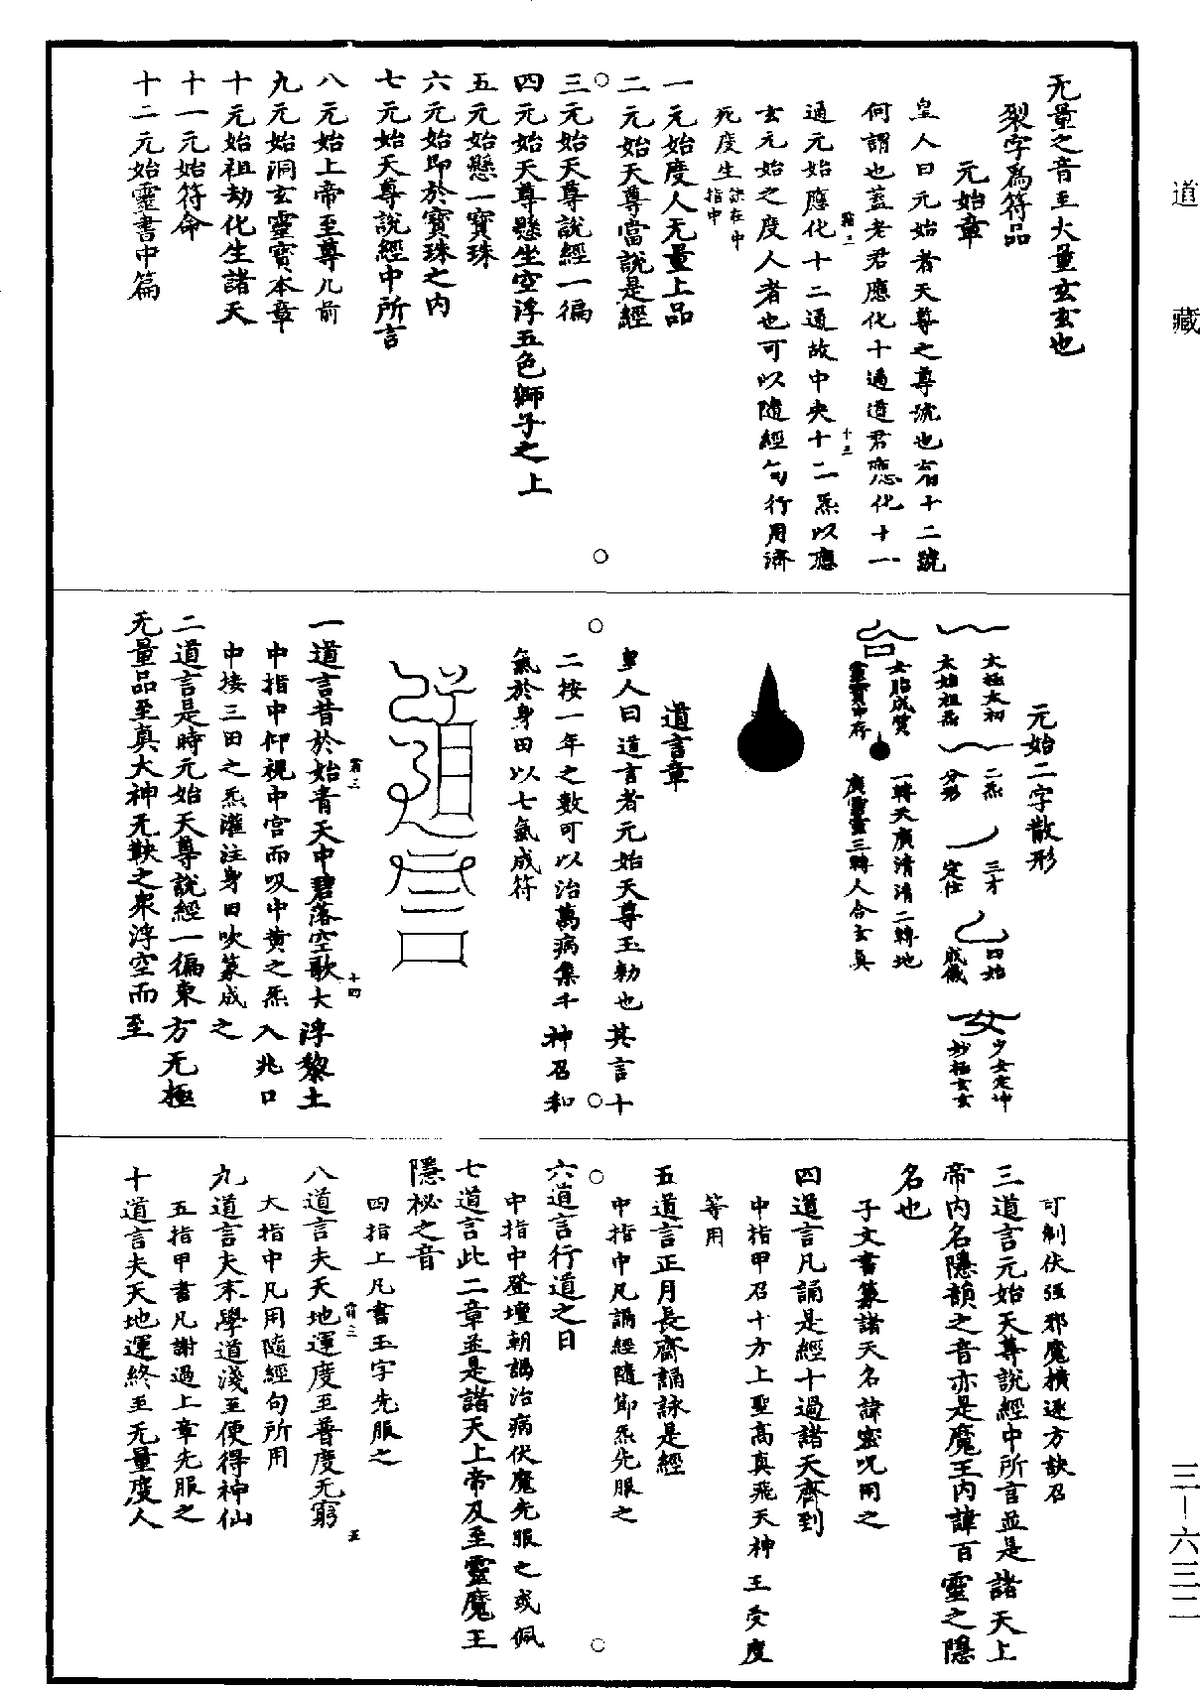 道藏
无量之音至大量玄玄也
裂字為符品
元始章
皇人曰元始者天尊之尊號也有十二號
何謂也蓋老君應化十過道君應化十一
過元始應化十二過故中央十二炁以應
玄元始之度人者也可以隨經句行用濟
死度生訣在中指中
一元始度人无量上品
二元始天尊當說是經
三元始天尊說經一徧
四元始天尊懸坐空浮五色獅子之上
五元始懸一寶珠
六元始即於寶珠之內
七元始天尊說經中所言
八元始上帝至尊几前
九元始洞玄靈寶本章
十元始祖劫化生諸天
十一元始符命
十二元始靈書中篇
元始二字散形
太極太初
太始祖炁
二炁
分形
三才
定位
四始
成儀
少女定坤
妙極玄玄
女胎成質
靈寶中存
一轉天廣清清二轉地
廣靈靈三轉人合玄真
道言章
皇人曰道言者元始天尊玉勑也其言十
二按一年之數可以治萬病集千神召和
氣於身田以七氣成符
一道言昔於始青天中碧落空歌大浮黎土
中指中仰視中宮而吸中黃之炁入兆口
中接三田之炁灌注身田吹篆成之
二道言是時元始天尊說經一徧東方无極
无量品至真大神无鞅之眾浮空而至
可制伏强邪魔橫逐方訣召
三道言元始天尊說經中所言並是諸天上
帝內名隱韻之音亦是魔王內諱百靈之隱
名也
子文書篆諸天名諱密咒用之
四道言凡誦是經十過諸天齊到
中指甲召十方上聖高真飛天神王受度
等用
五道言正月長齋誦詠是經
中指中凡誦經隨節炁先服之
六道言行道之日
中指中登壇朝謁治病伏魔先服之或佩
七道言此二章並是諸天上帝及至靈魔王
隱祕之音
四指上凡書玉字先服之
八道言夫天地運度至普度无窮
大指中凡用隨經句所用
九道言夫末學道淺至便得神仙
五指甲書凡謝過上章先服之
十道言夫天地運終至无量度人
三－六三二